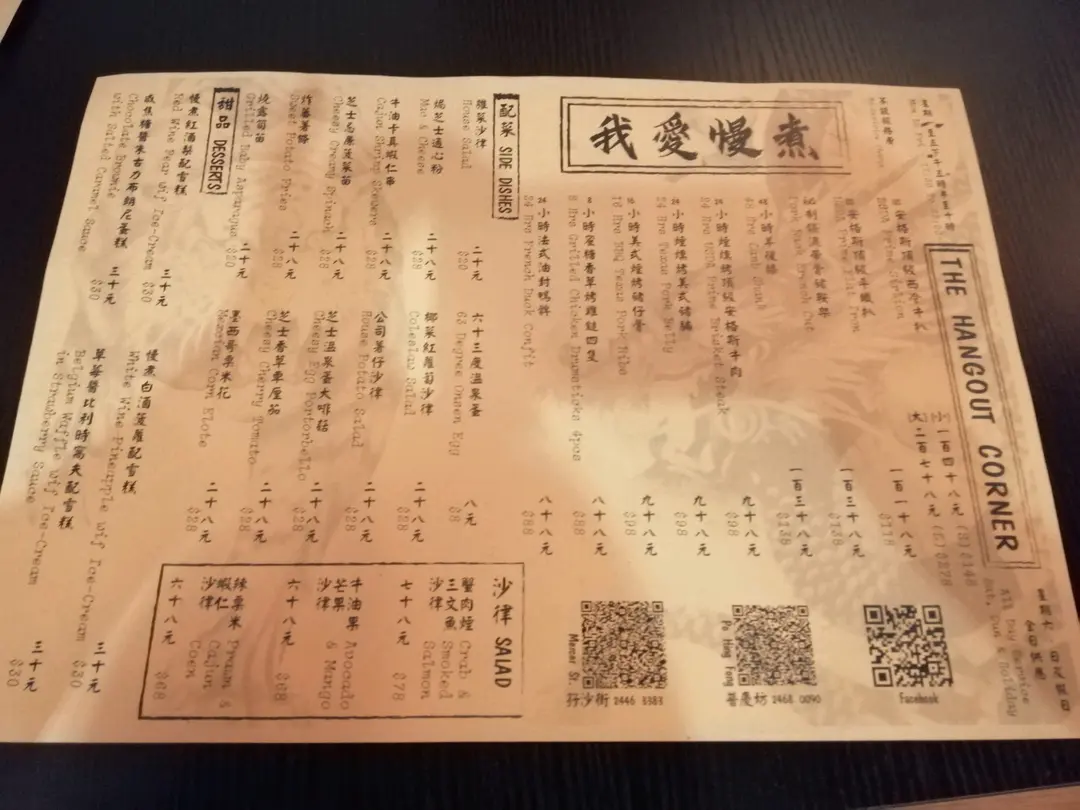 我愛慢煮
THE HANGOUT CORNER
星期一至五下午五時半至十時
不設服務費
星期六、日及假日
全日供應
Sat, Sun & Holiday
安格斯頂級西冷牛扒
USDA Prime Sirloin
(小)一百四十八元 (S) $148
(大)二百七十八元 (L) $278
安格斯頂級牛纖扒
USDA Prime Flat Iron
一百一十八元 $118
Pork Rack French Cut
一百三十八元 $138
48 小時羊後膝
48 Hrs Lamb Shank
一百三十八元 $138
24 小時煙燻烤頂級安格斯牛肉
24 Hrs USDA Prime Brisket Steak
九十八元 $98
24 小時煙燻烤美式豬腩
24 Hrs Texas Pork Belly
九十八元 $98
16 小時美式煙烤豬仔骨
16 Hrs BBQ Texas Pork Ribs
九十八元 $98
8 小時蜜糖香草烤雞鎚四隻
8 Hrs Grilled Chicken Drumsticks 4pcs
八十八元 $88
24 小時法式油封鴨髀
24 Hrs French Duck Confit
八十八元 $88
配菜 SIDE DISHES
雜菜沙律
House Salad
二十元 $20
焗芝士通心粉
Mac & Cheese
二十八元 $28
牛油卡真蝦仁串
Cajun Shrimp Skewers
二十八元 $28
芝士忌廉菠菜苗
Cheesy Creamy Spinach
二十八元 $28
炸蕃薯條
Sweet Potato Fries
二十八元 $28
燒露筍苗
Grilled Baby Asparagus
二十元 $20
六十三度溫泉蛋
63 Degree Onsen Egg
八元 $8
椰菜紅蘿蔔沙律
Coleslaw Salad
二十八元 $28
公司薯仔沙律
House Potato Salad
二十八元 $28
芝士溫泉蛋大啡菇
Cheesy Egg Portorbello
二十八元 $28
芝士香草車厘茄
Cheesy Cherry Tomato
二十八元 $28
墨西哥粟米花
Mexican Corn Elote
二十八元 $28
甜品 DESSERTS
慢煮紅酒梨配雪糕
Red Wine Pear wif Ice-Cream
三十元 $30
咸焦糖醬朱古力布朗尼蛋糕
Chocolate Brownie
with Salted Caramel Sauce
三十元 $30
慢煮白酒菠蘿配雪糕
White Wine Pineapple wif Ice-Cream
三十元 $30
草莓醬比利時窩夫配雪糕
Belgium Waffle wif Ice-Cream
in Strawberry Sauce
三十元 $30
沙律 SALAD
蟹肉煙三文魚沙律
Crab & Smoked Salmon
七十八元 $78
牛油果芒果沙律
Avocado & Mango
六十八元 $68
辣粟米蝦仁沙律
Prawn & Cajun Coen
六十八元 $68
Facebook
Po Hing Fong
普慶坊 2468 0090
Mercer St.
孖沙街 2446 3383